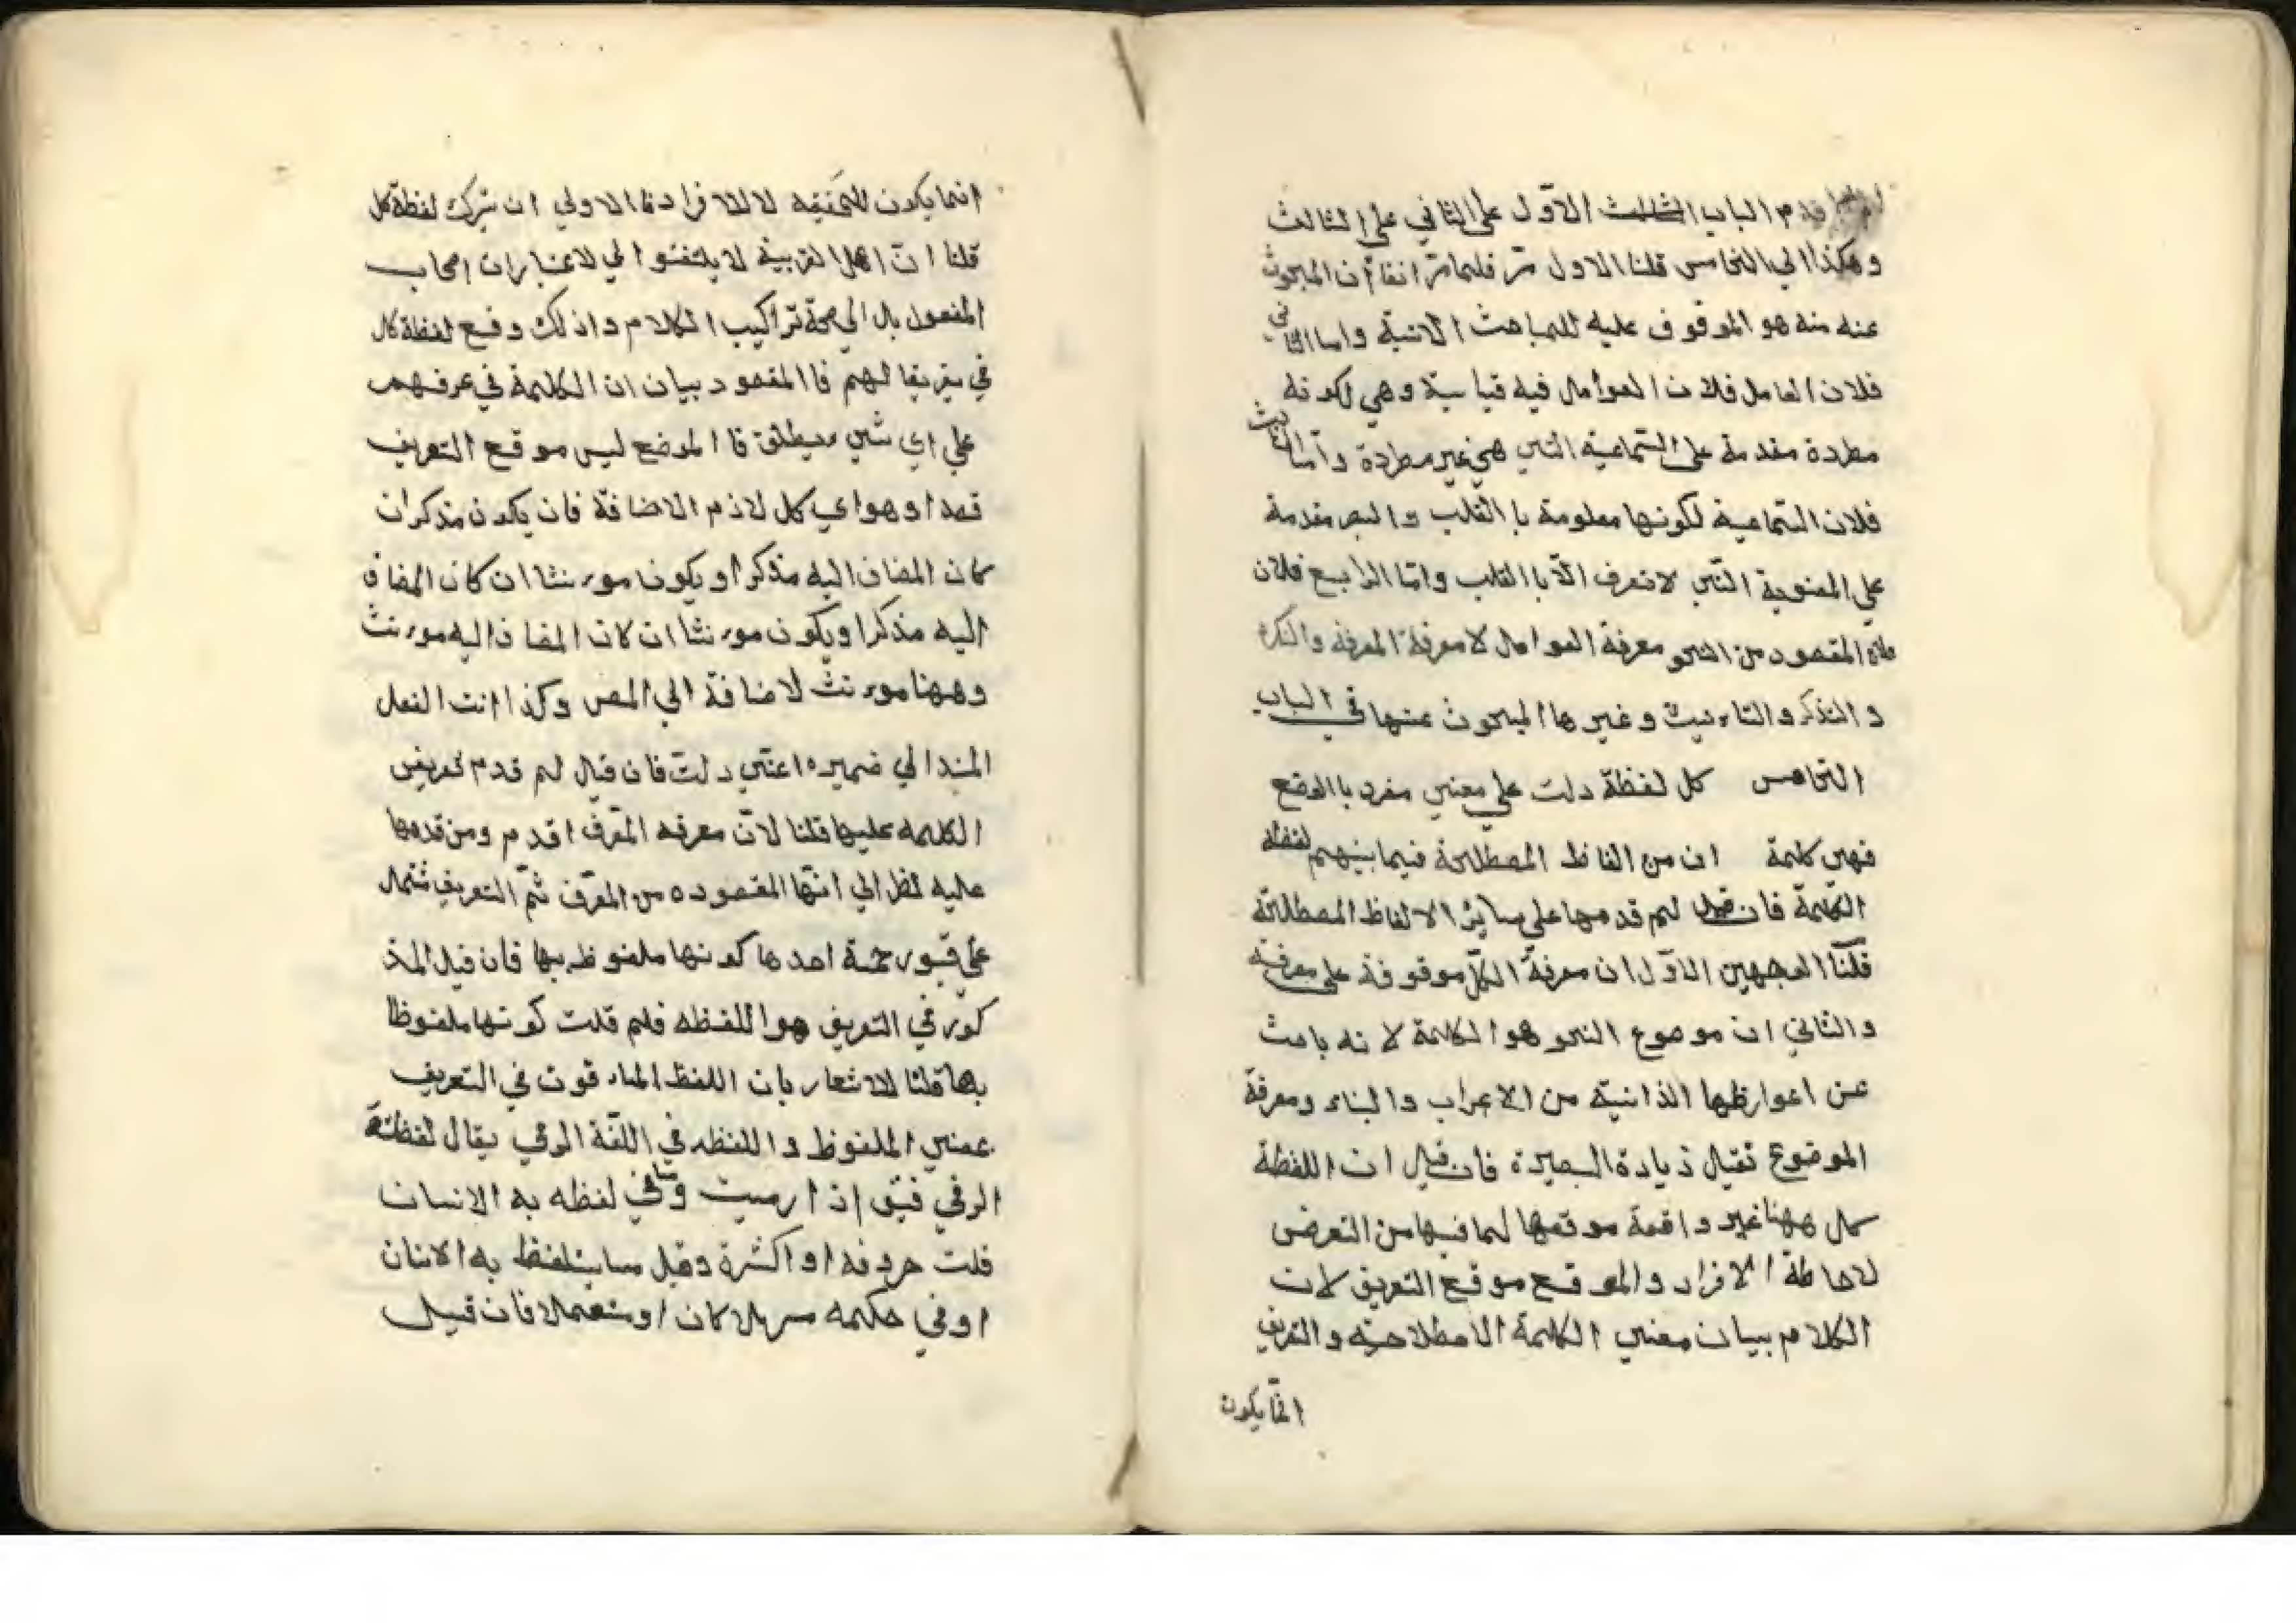 قدم الباب الثالث الاوّل على الثاني على الثالث
وهكذا الي الخامس قلنا الاول مرّ فلما مرّ انفا أن المبحوث
عنه منه هو الموقوف عليه للمباحث الاتية واما الثاني
فلان العامل فلان العوامل فيه قياسية وهي لكونه
مطردة مقدمة على السّماعية التي هي غير مطردة وأمّا الثالث
فلان السّماعية لكونها معلومة با القلب و مقدمة
علي المعنوية التّي لا تعرف الّا با القلب وامّا الرابع فلان
المقصود من النحو معرفة العوامل لا معرفة المعرفة والنكرة
والتذكر والتاءنيث وغيرها المبحوث عنها في الباب
الخامس كل لفظة دلت علي معني مفرد با الوضع
فهي كلمة ان من الفاظ المصطلحة فيما بينهم لفظة
الكلمة فان قيل لم قدمها على سايرُ الالفاظ المصطلحة
قلنَا الوجهين الاوّل ان معرفة الكلّ موقوفة على معرفته
والثاني ان موصوع النحو هو الكلمة لانه باحث
عن اعوارظها الذاتيّة من الاعراب والبناء ومعرفة
الموضوع تقبل زيادة البصيرة فان قيل ان اللفظة
كل ههنا غير واقعة موقعها لما فيها من التعرض
لاحاطة الافراد والموقع موقع التعريف لان
الكلام ببيان معني الكلمة الاصطلاحيّة والتعريف
انمّا يكون
انما يكون للحَقيقه لا للافراد فا الاولي ان يترك لفظة كل
قلنا انّ اهل العربية لا يلتفتوا لي لاعتبار ان اصحاب
المفعول بال الي صحة تراكيب الكلام واذلك وقع لفظة كل
في تعريفا لهم فا المقصود بيان ان الكلمة في عرفهم
علي اي شيء يطلق فا الموضع ليس موقع التعريف
قصدا وهو اي كل لازم الاضافة فان يكون مذكر ان
كان المضاف اليه مذكر أو يكون موءنثا ان كان المضاف
اليه مذكرا ويكون موءنثا ان كان المضاف اليه موءنث
وههنا موءنث لاضافة الي المص وكذا انث الفعل
المسندا لي ضميره اعني دلت فان قيل لم قدم تعريف
الكلمه عليها قلنا لانّ معرفه المعّرف اقدم ومن قدمها
عليه نظر الي انّها المقصوده من المعّرف ثمّ التعريف شتمل
علي قيور خمسة احدها كونها ملفوظ بها فان قيل المذ
كورّ في التعريف هو اللفظه فلم قلت كونها ملفوظا
بها قلنا للاشعار بان اللفظ الماء قون في التعريف
عمني الملفوظ و اللفظه في اللغّة الرمي يقال لفظتهَ
الرمي فيق اذا رميت وفي لفظه به الانسان
قلت حروفه او اكثرة وقيل ما يتلفظ به الانسان
او في حكمه مهملا كان او مستعملا فان قيل